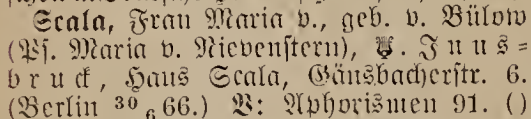 Scala, Frau Maria v., geb. v. Bülow
(Ps. Maria v. Nievenstern), . Inns-
bruck, Haus Scala, Gänsbacherstr. 6.
(Berlin 30 6 66.) V: Aphorismen 91. ()